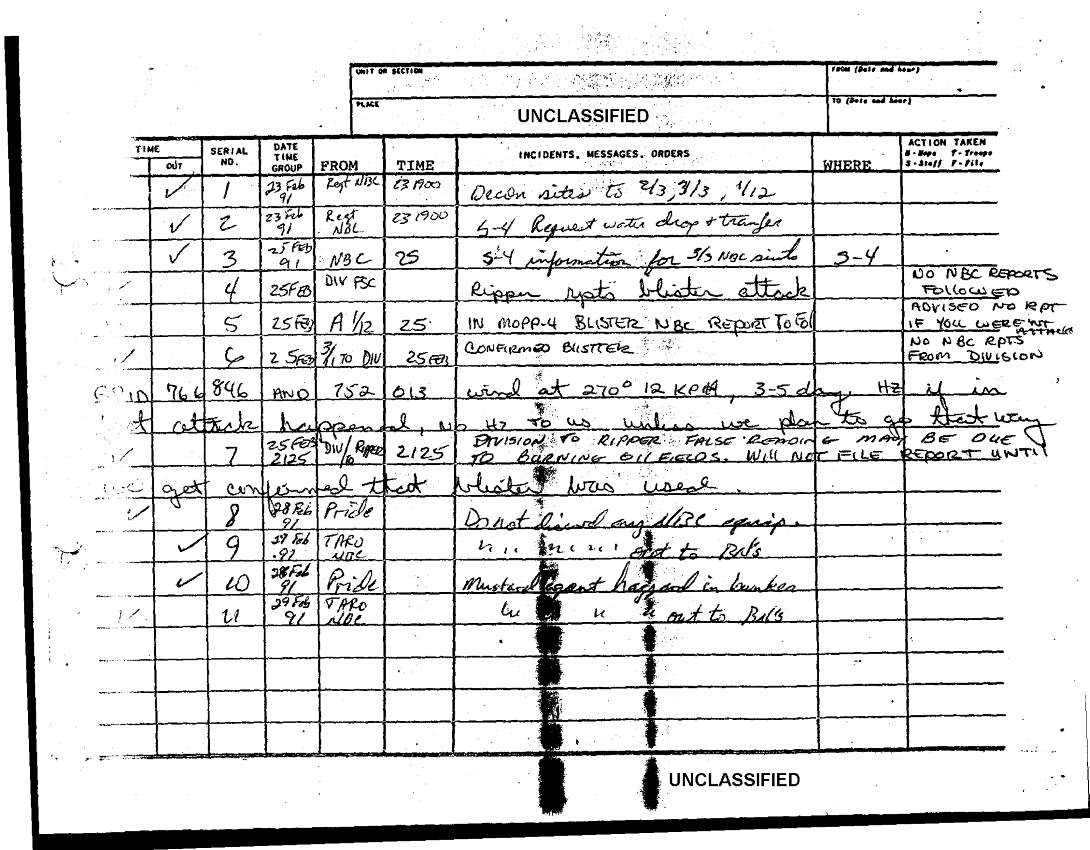 UNIT OR SECTION FROM (Date and hour)
PLACE UNCLASSIFIED TO (Date and hour)
TIME OUT SERIAL NO. DATE TIME GROUP FROM TIME INCIDENTS, MESSAGES, ORDERS WHERE ACTION TAKEN M-Maps T-Troops S-Staff F-File
✓ 1 23 Feb 91 Regt NBC 231900 Decon sites to 2/3, 3/3, 1/12
✓ 2 23 Feb 91 Regt NBC 231900 S-4 Request water drop + transfer
✓ 3 25 FEB 91 NBC 25 S-4 information for NBC S-4
4 25FEB DIV FSC Ripper rpts blister attack NO NBC REPORTS FOLLOWED
5 25FEB A 1/12 25 IN MOPP-4 BLISTER NBC REPORT TO FOL ADVISED NO RPT IF YOU WEREN'T ATTACKED
6 25FEB TO DIV 25FEB CONFIRMED BLISTTER NO NBC RPTS FROM DIVISION
GRID 766 846 AND 752 013 wind at 270° 12 KPH, 3-5 day HZ if in
attack happened, no HZ to us unless we plan to go that way
7 25 FEB 2125 DIV/ TO RIPPER 2125 DIVISION TO RIPPER FALSE READING MAY BE DUE TO BURNING OILFIELDS. WILL NOT FILE REPORT UNTIL
get confirmed that blister was used.
8 28 Feb 91 Pride Do not discard any NBC equip.
✓ 9 91 TARO NBC " " " " " out to BN's
✓ 10 28 Feb 91 Pride Mustard agent hazzard in bunker
11 91 TARO NBC " " " out to BN's
UNCLASSIFIED